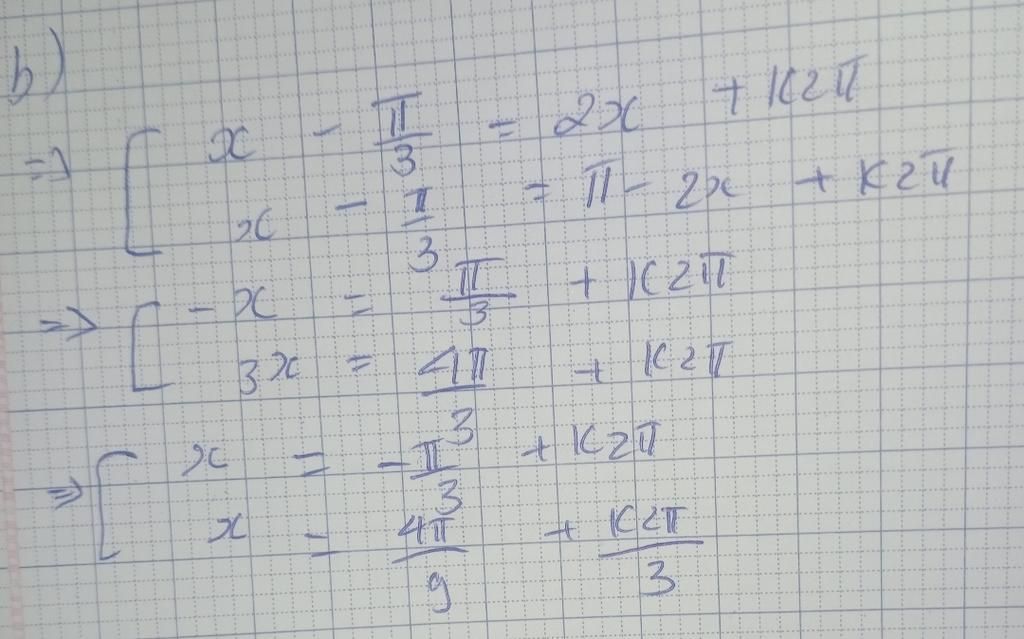 b)
=> [ x - π/3 = 2x + K2π
x - π/3 = π - 2x + K2π
=> [ -x = π/3 + K2π
3x = 4π/3 + K2π
=> [ x = -π/3 + K2π
x = 4π/9 + K2π/3